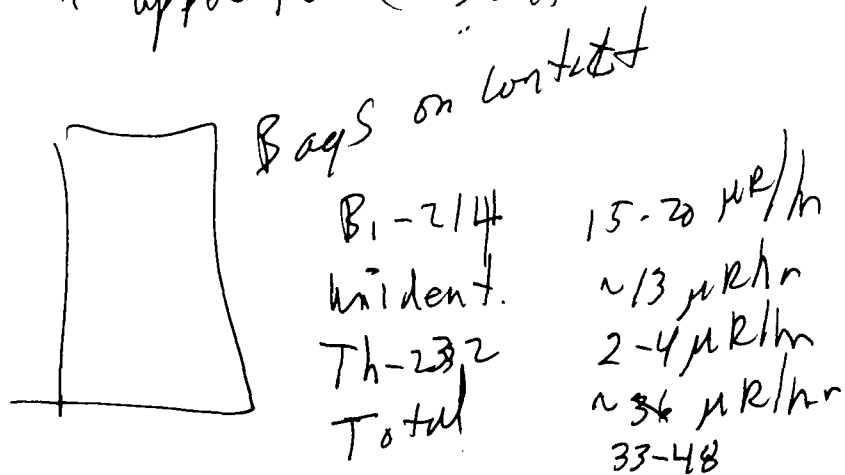 Bags on contact
Bi-214 15-20 μR/hr
Unident. ~13 μR/hr
Th-232 2-4 μR/hr
Total ~36 μR/hr
33-48